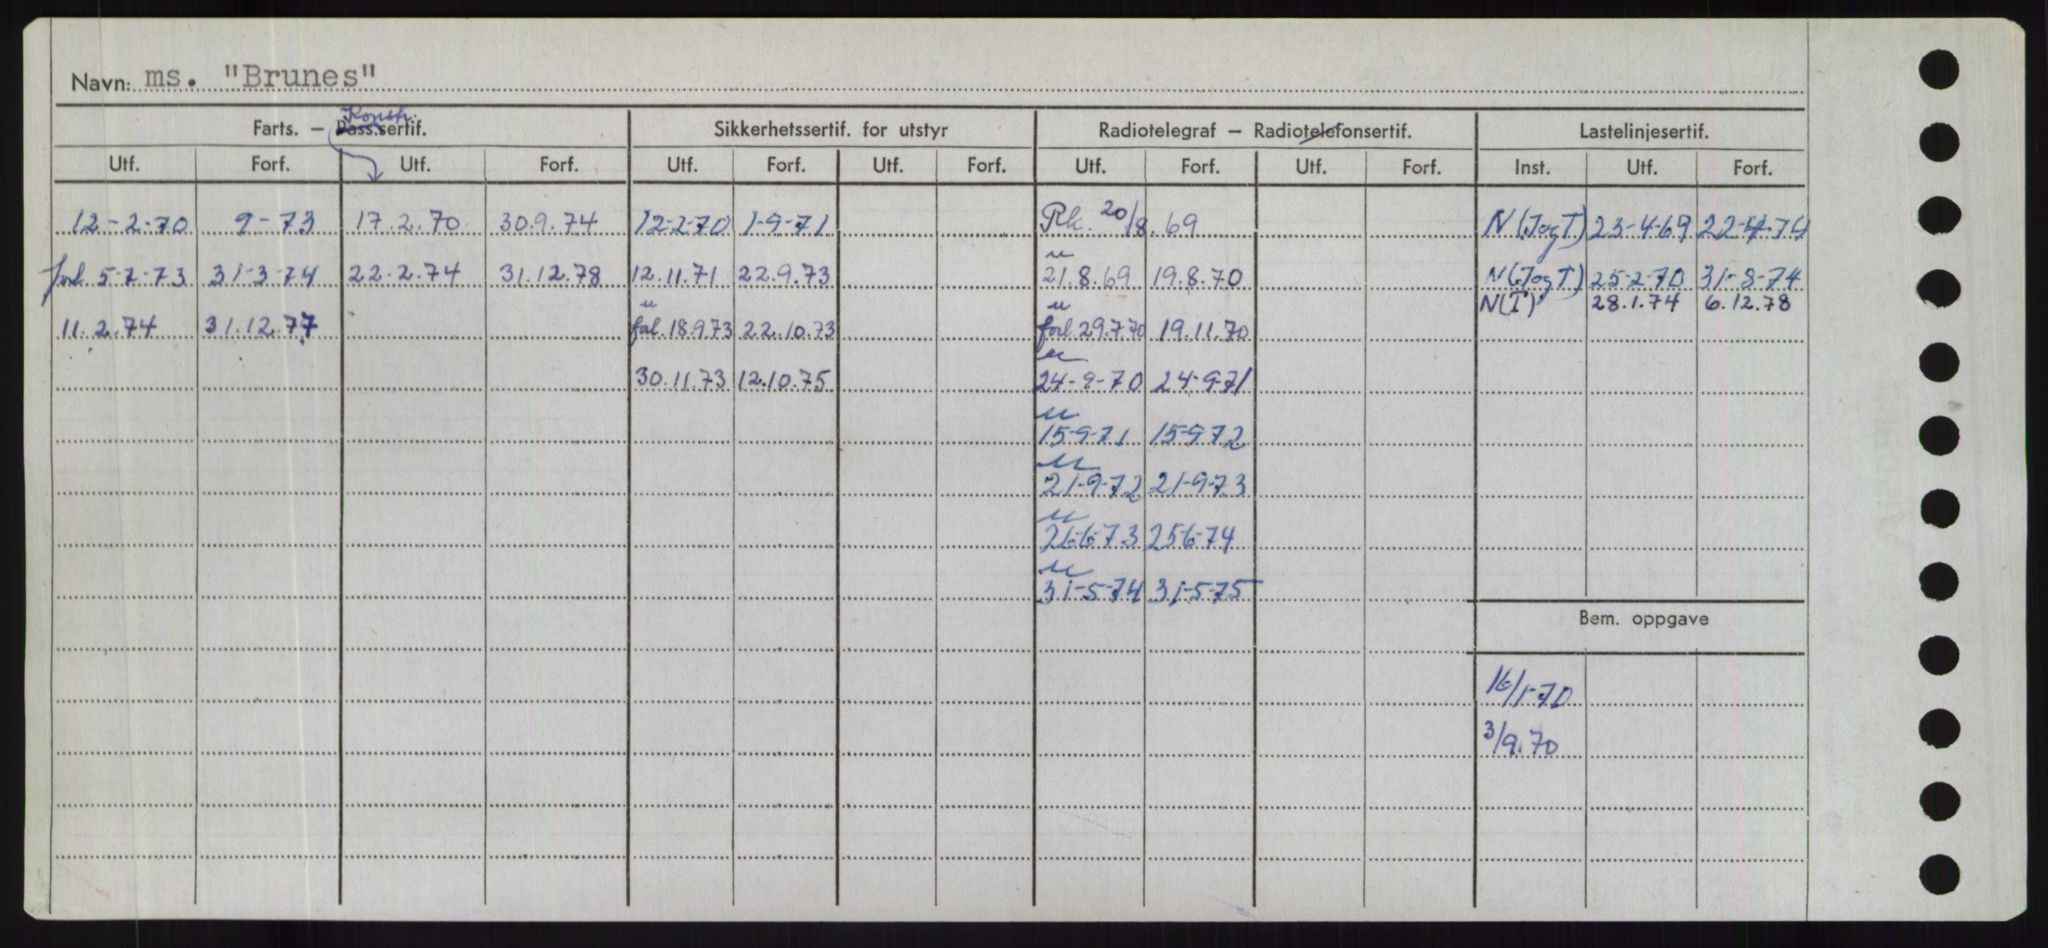 Navn: ms. "Brunes"
Konstr.
Farts. — Pass.sertif. Sikkerhetssertif. for utstyr Radiotelegraf — Radiotelefonsertif. Lastelinjesertif.
Utf. Forf. Utf. Forf. Utf. Forf. Utf. Forf. Utf. Forf. Utf. Forf. Inst. Utf. Forf.
12-2-70 9-73 17.2.70 30.9.74 12-2-70 1-9-71 Rk. 20/8.69 N(JogT) 23-4-69 22-4-74
forl. 5-7-73 31-3-74 22.2.74 31.12.78 12.11.71 22.9.73 " 21.8.69 19.8.70 N(JogT) 25-2-70 31-8-74
N(T) 28.1.74 6.12.78
11.2.74 31.12.77 " forl. 18.9.73 22.10.73 " forl. 29.7.70 19.11.70
30.11.73 12.10.75 " 24-9-70 24-9-71
" 15-9-71 15-9-72
" 21-9-72 21-9-73
" 26-6-73 25-6-74
" 31-5-74 31-5-75
Bem. oppgave
16/1-70
3/9.70